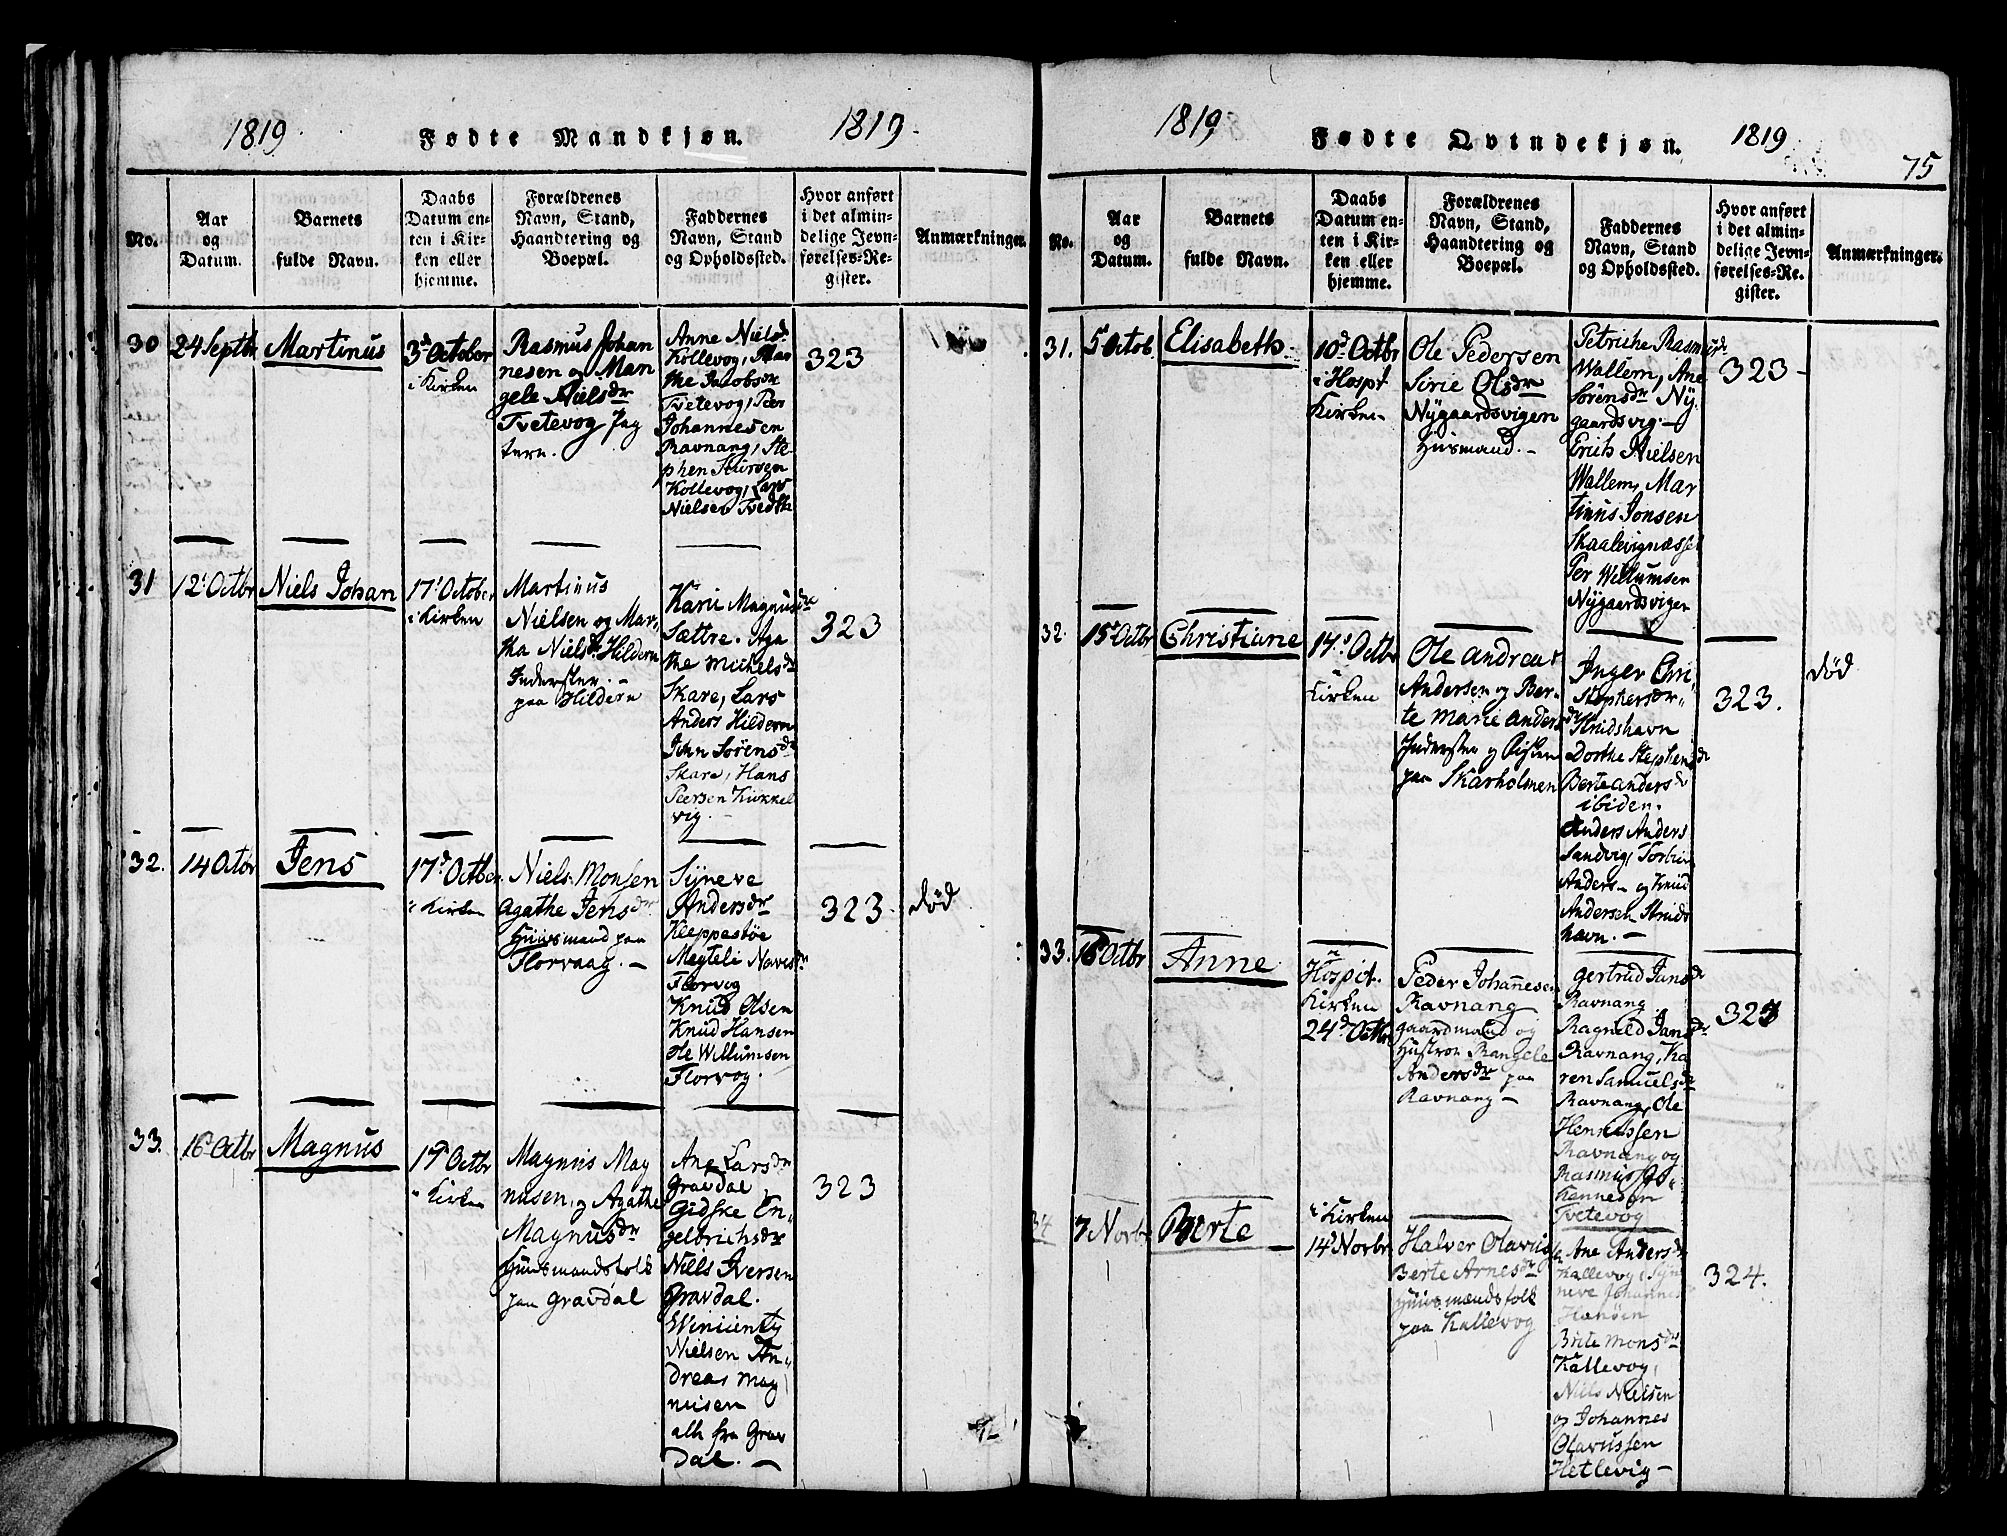 1819.
Fødte Mandkjøn.
1819.
No.
Aar
og
Datum.
Barnets
fulde Navn.
Daabs
Datum en-
ten i Kir-
ken eller
hjemme.
Forældrenes
Navn, Stand,
Haandtering og
Boepæl.
Faddernes
Navn, Stand
og Opholdssted.
Hvor anført
i det almin-
delige Jevn-
førelses-Re-
gister.
Anmærkninger.
30
24 Septbr
Martinus
3d October
i Kirken
Rasmus Johan
nesen og Man
gele Nielsdr
Tvetevog
tern.
Anne Nielsd.
Kollevog, Mar
the Jacobsdr
Tvetevog, Peer
Johannesen
Ravnang, Ste-
phen Siursen
Kollevog, Lars
Nielsen Tvedth
323
31
12t Octbr
Niels Johan
17t October
i Kirken
Martinus
Nielsen og Mar-
tha Nielsd. Hildern
Inderster.-
paa Hildern
Karie Magnusdr
Sættre. Aga
the Mikelsdr
Skare, Lars
Anders Hildern
John Sørensdr
Skare, Hans
Peersen Kukkel
vig.
323
32.
14 Octbr
Jens
17d Octber.
i Kirken
Niels Monsen
Agathe Jensdr
Huusmand paa
Florvaag.-
Syneve
Andersdr
Kleppestøe
Magteli Navesdr
Florvog
Knud Olsen
Knud Hansen
Ole Willumsen
Florvog.
323.
død
33.
16 Octbr
Magnus
17d Octbr
i Kirken
Magnus Mag
nusen, og Agathe
Magnusdr
Huusmandsfolk
paa Gravdal
Ane Larsdr
Gravdal
Gidske En-
gelbrichsdr
Niels Iversen
Gravdal.
Winienty
Nielsen An-
dreas Mag
nusen
alle fra Grav
dal.-
323
1819
Fødte Qvindekjøn.
1819
75
No.
Aar
og
Datum.
Barnets
fulde Navn.
Daabs
Datum en-
ten i Kir-
ken eller
hjemme.
Forældrenes
Navn, Stand,
Haandtering og
Boepæl.
Faddernes
Navn, Stand
og Opholdssted.
Hvor anført
i det almin-
delige Jevn-
førelses-Re-
gister.
Anmærkninger.
31.
5 Octob.
Elisabeth.
10d Octbr
i Hospt
Kirken
Ole Pedersen
Sirie Olsdr
Nygaardsvigen
Husmand.-
Petriche Rasmusd.
Wallem, Ane
Sørensdr Ny-
gaardsvig.-
Erich Nielsen
Wallem, Mar
tinus Jonsen
Skaalevignæsset
Per Willumsen
Nygaardsvigen
323-
32.
15d Octbr
Christiane
17d Octbr
i Kirken
Ole Andreas
Andersen og Ber-
te Marie Andersdr
Inderster og
paa Skarholmen
Inger Chri-
stophersdr
Strudshavn
Dorthe Stephensdr
Berte Andersdr
ibiden.
Anders Anders
Sandvig, Torbiø
Anders- og Knud
Andersen Struds
havn.-
323.
død
33.
16 Octbr
Anne
Hospit.
Kirken
24d Octbr
Peder Johannesen
Ravnang
gaardmand og
Hustroe Rangele
Andersdr paa
Ravnang-
Gertrud Jansdr
Ravnang
Ragnild Jansdr
Ravnang, Ka
ren Samuelsdr
Ravnang, Ole
Henricssen
Ravnang og
Rasmus Jo-
hannesen
Tvetevog
323
34
7 Novbr
Berte
i Kirken
14d Novbr
Halver Olavus
Berte Arnesdr
Huusmændsfolk
paa Kallevog
Ane Andersdr
Kallevog, Syne
neve Johannes
Hanøen
Brite Monsdr
Kallevog,
Nils Nielsen
og Johannes
Olavussen
Hetlevig-
324.